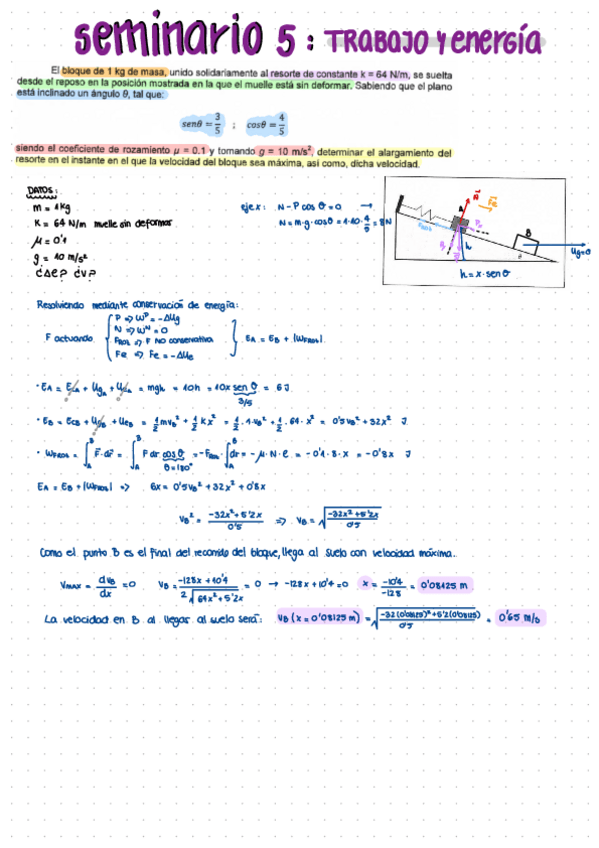 seminario 5: TRABAJO Y energía
El bloque de 1 kg de masa, unido solidariamente al resorte de constante k = 64 N/m, se suelta
desde el reposo en la posición mostrada en la que el muelle está sin deformar. Sabiendo que el plano
está inclinado un ángulo θ, tal que:
senθ = 3/5 ; cosθ = 4/5
siendo el coeficiente de rozamiento μ = 0.1 y tomando g = 10 m/s², determinar el alargamiento del
resorte en el instante en el que la velocidad del bloque sea máxima, así como, dicha velocidad.
DATOS:
m = 1 kg
K = 64 N/m muelle sin deformar
μ = 0'1
g = 10 m/s²
¿Δe? ¿v?
eje x: N - P cos θ = 0 →
N = m·g·cosθ = 1·10·4/5 = 8N
A
N
Fe
B
h
Ug=0
h = x·senθ
Resolviendo mediante conservación de energía:
F actuando
P => Wᴾ = -ΔUg
N => Wᴺ = 0
FROZ => F NO conservativa
Fe => Fe = -ΔUe
EA = EB + |WFROZ|
· EA = EcA + UgA + UeA = mgh = 10h = 10x sen θ = 6 J
3/5
· EB = EcB + UgB + UeB = 1/2 mvB² + 1/2 kx² = 1/2·1·vB² + 1/2·64·x² = 0'5vB² + 32x² J
· WFROZ = ∫ F·dr = ∫ F dr cosθ = -FROZ ∫ dr = -μ·N·e = -0'1·8·x = -0'8x J
θ=180°
EA = EB + |WFROZ| => 6x = 0'5vB² + 32x² + 0'8x
vB² = (-32x² + 5'2x)/0'5 => vB = √((-32x² + 5'2x)/0'5)
Como el punto B es el final del recorrido del bloque, llega al suelo con velocidad máxima.
Vmax = dvB/dx = 0 VB = (-128x + 10'4)/(2√(64x² + 5'2x)) = 0 → -128x + 10'4 = 0 x = -10'4/-128 = 0'08125 m
La velocidad en B al llegar al suelo será: VB (x = 0'08125 m) = √((-32(0'08125)² + 5'2(0'08125))/0'5) = 0'65 m/s